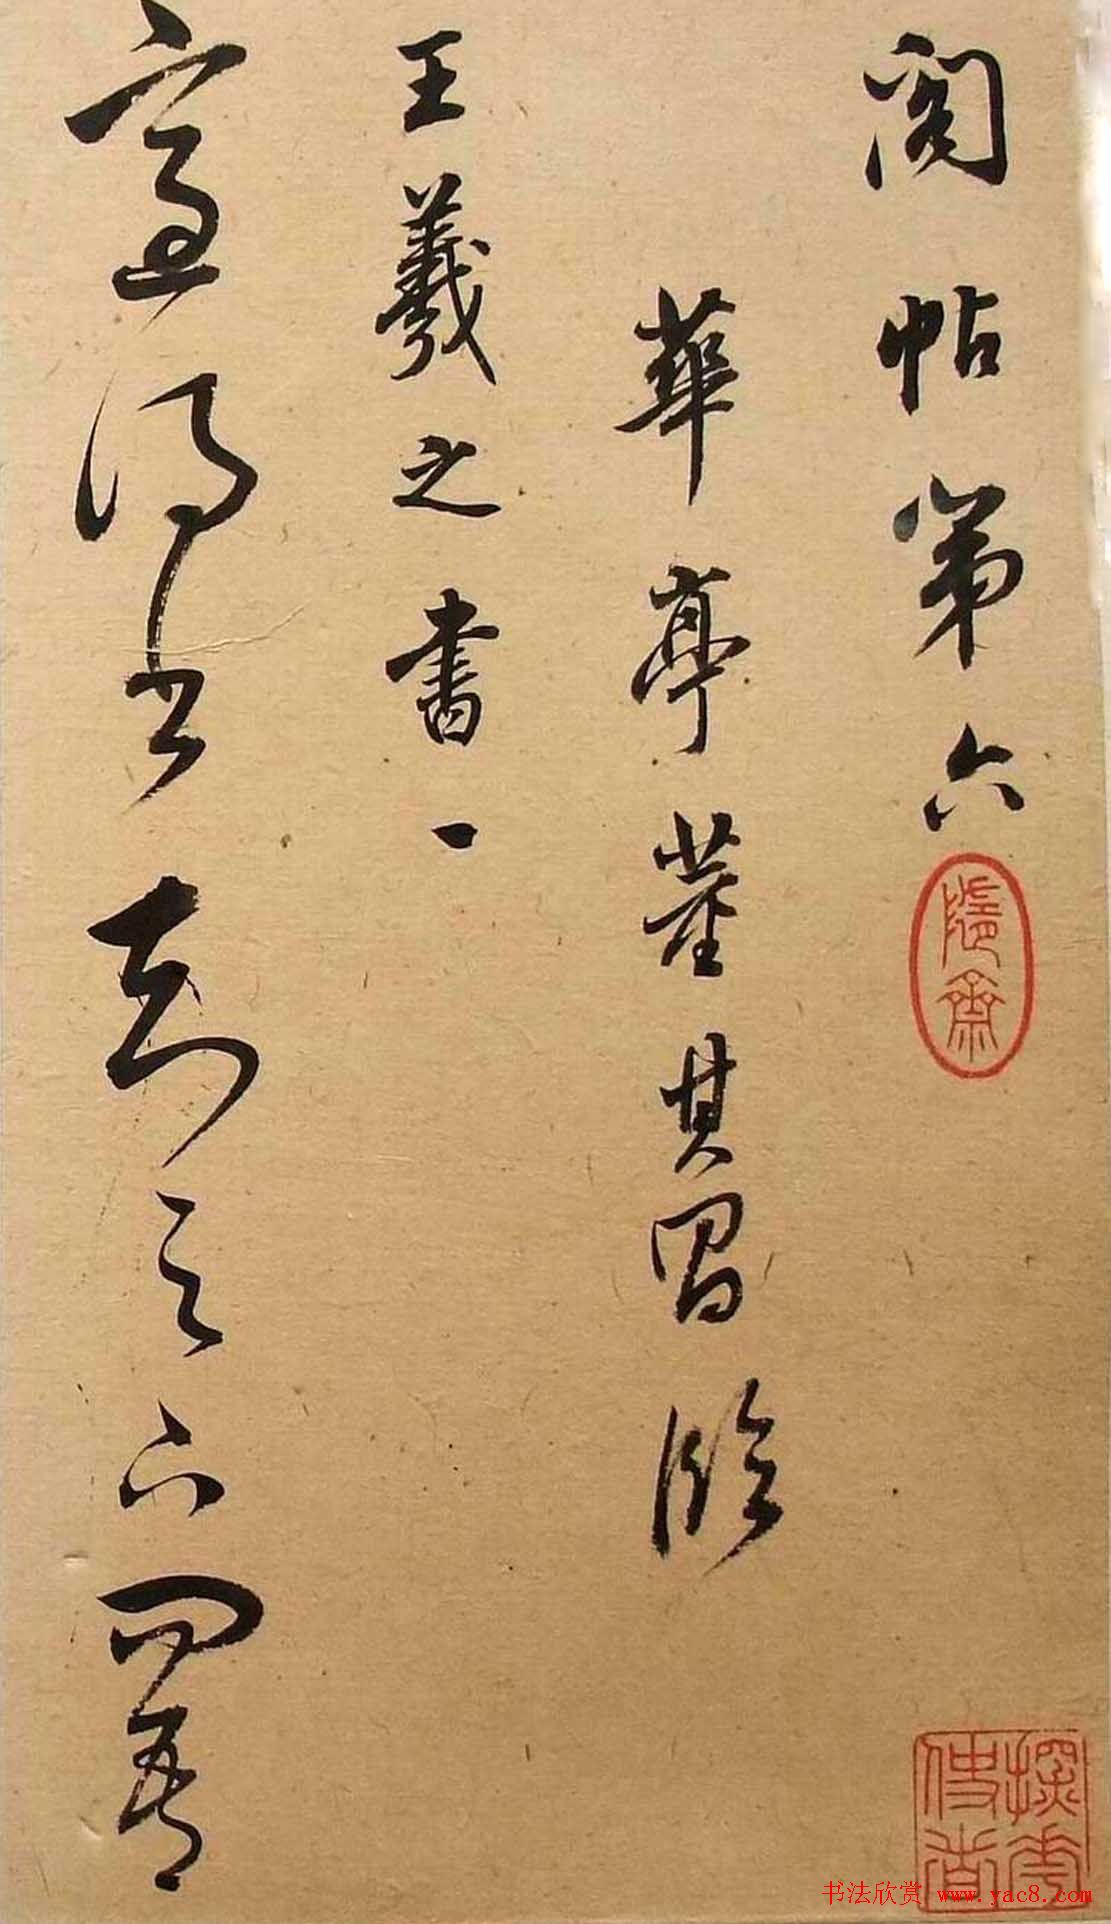 閣帖第六
華亭董其昌臨
王羲之書一
適得書知足下問吾
探花使者
书法欣赏 www.yac8.com